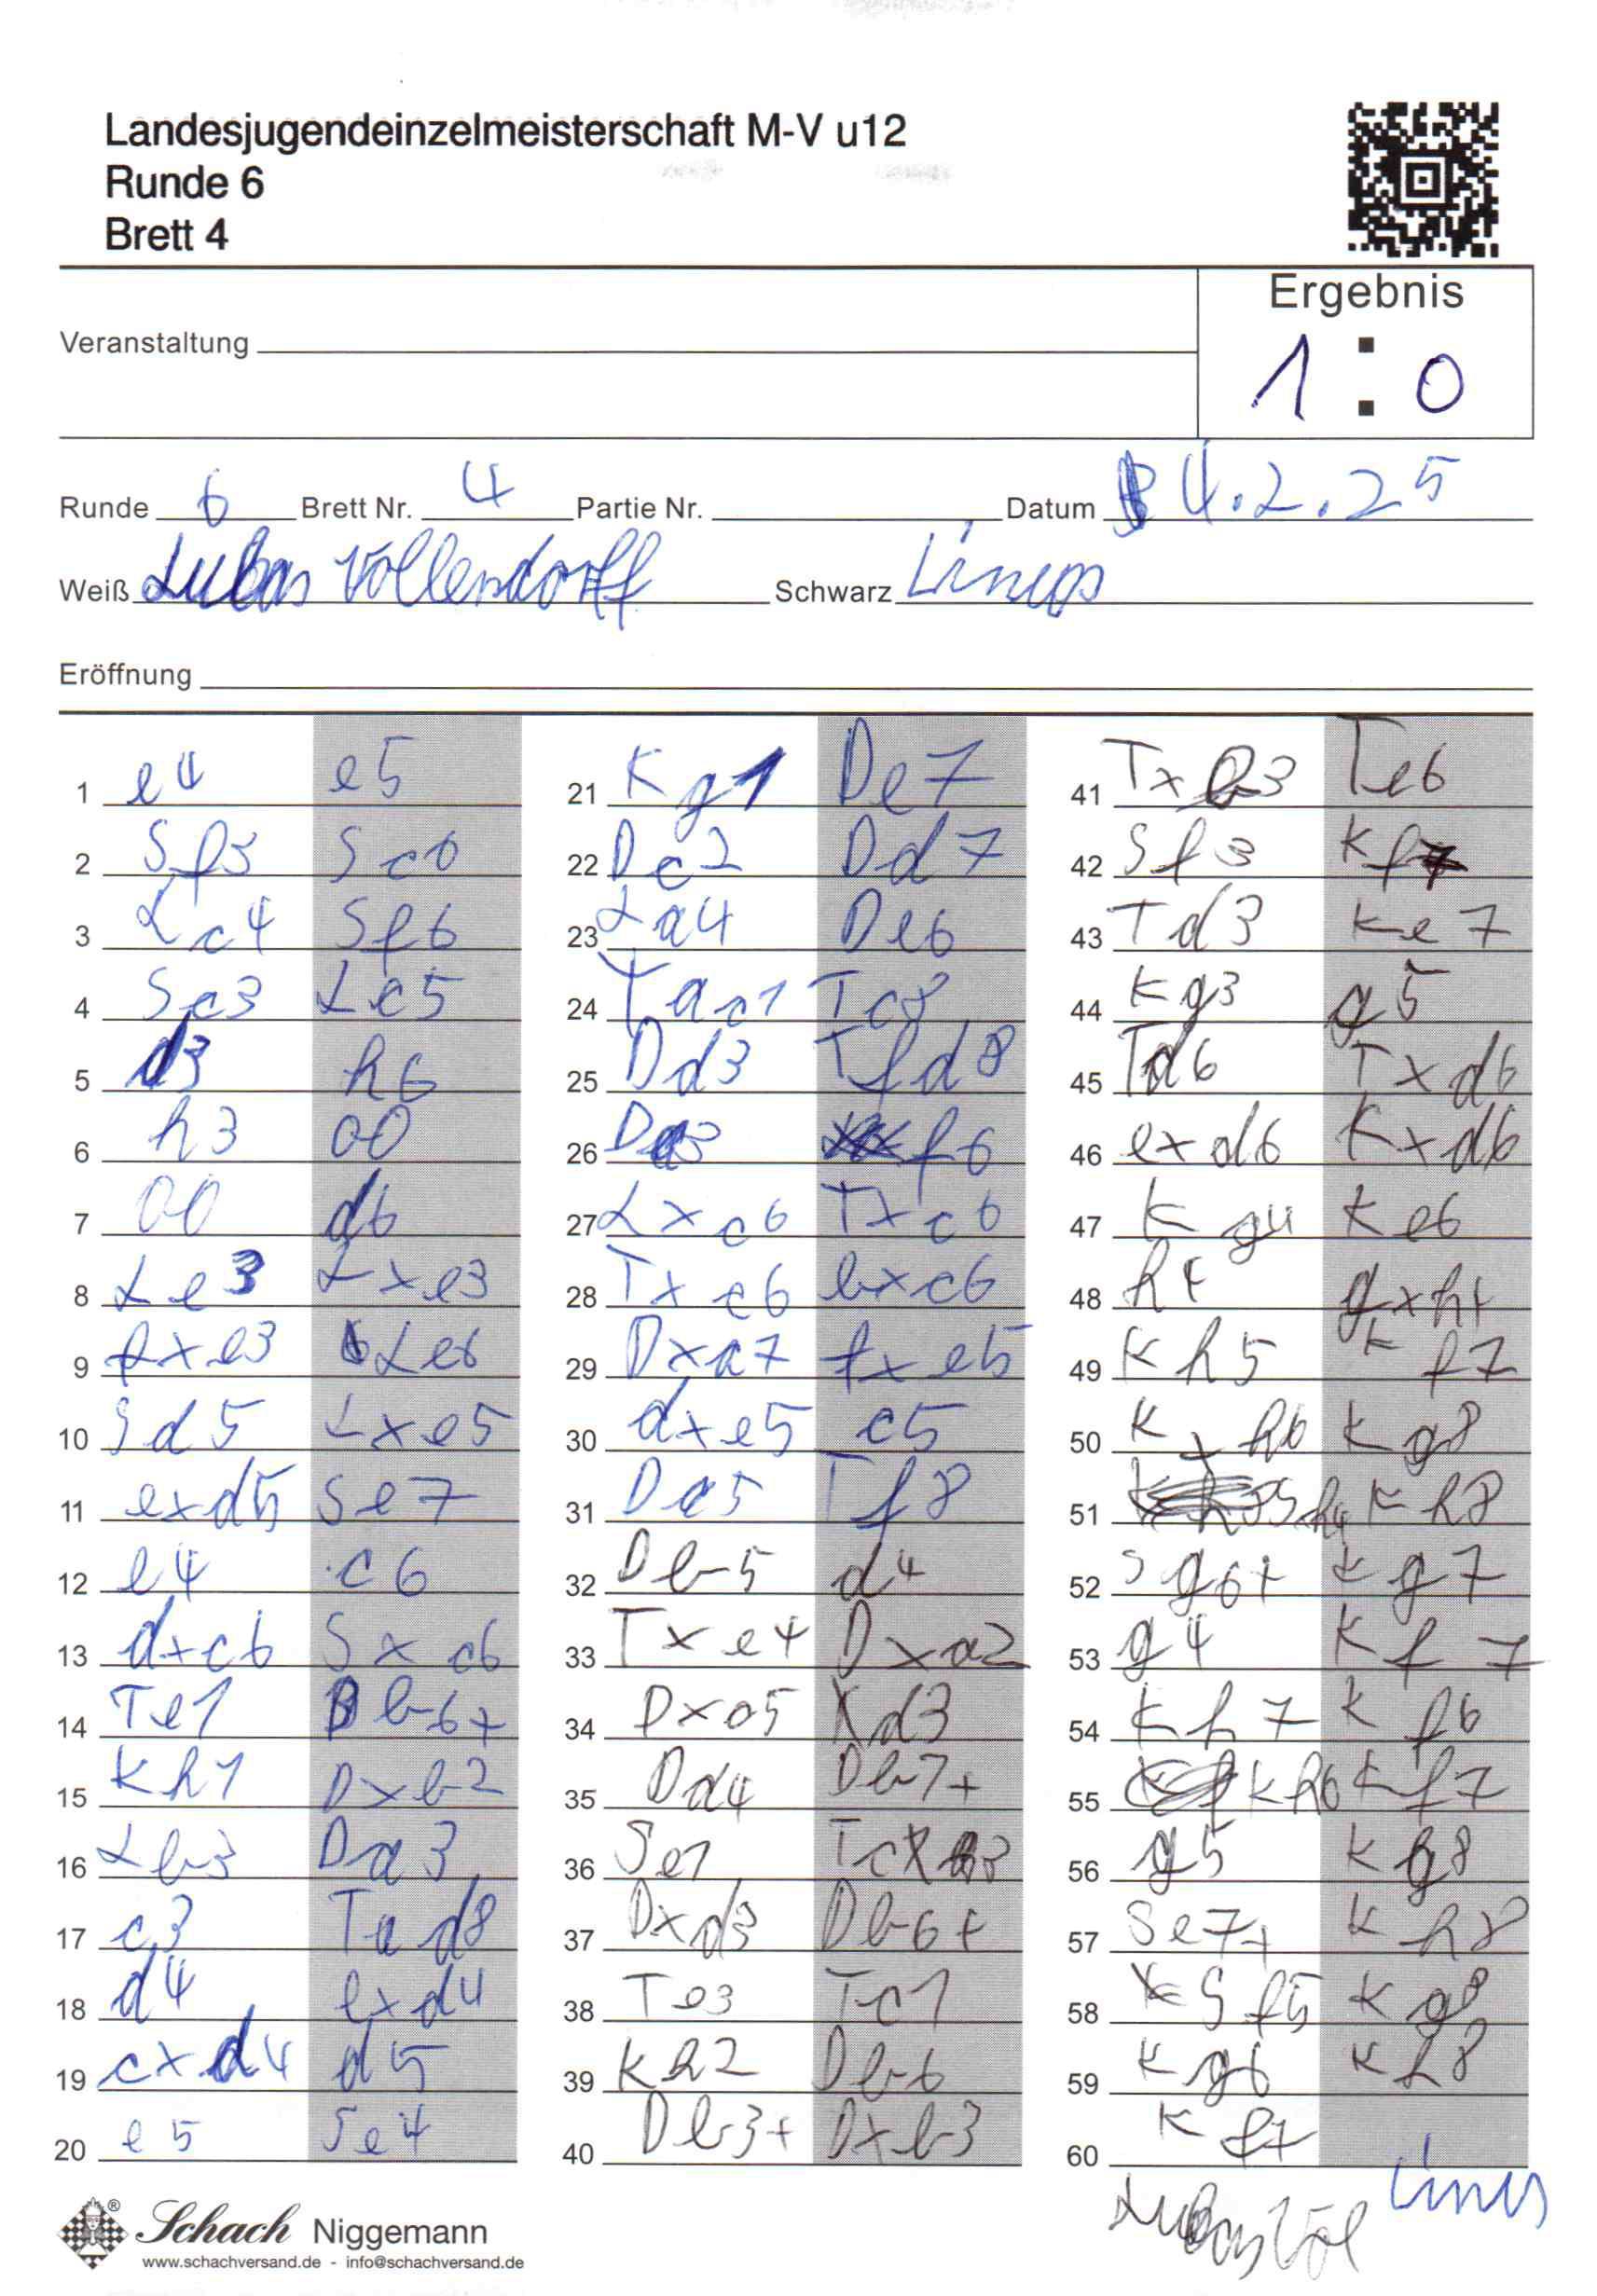 Landesjugendeinzelmeisterschaft M-V u12
Runde 6
Brett 4
Ergebnis
1 : 0
Veranstaltung
Runde 6 Brett Nr. 4 Partie Nr. Datum 4.2.25
Weiß Lukas Vollendorff Schwarz Linus
Eröffnung
1 e4 e5
2 Sf3 Sc6
3 Lc4 Sf6
4 Sc3 Lc5
5 d3 h6
6 h3 00
7 00 d6
8 Le3 Lxe3
9 fxe3 Le6
10 Sd5 Lxe5
11 exd5 Se7
12 e4 c6
13 dxc6 Sxc6
14 Te1 Db6+
15 Kh1 Dxb2
16 Lb3 Da3
17 c3 Tad8
18 d4 exd4
19 cxd4 d5
20 e5 Se4
21 Kg1 De7
22 Dc2 Dd7
23 La4 De6
24 Tac1 Tc8
25 Dd3 Tfd8
26 Da3 f6
27 Lxc6 Txc6
28 Txc6 bxc6
29 Dxa7 fxe5
30 dxe5 c5
31 Da5 Tf8
32 Db5 d4
33 Txe4 Dxa2
34 Dxc5 d3
35 Dd4 Db1+
36 Se1 Tc8
37 Dxd3 Db6+
38 Te3 Tc1
39 Kh2 Db6
40 Db3+ Dxb3
41 Txb3 Te6
42 Sf3 Kf7
43 Td3 Ke7
44 Kg3 g5
45 Td6 Txd6
46 exd6 Kxd6
47 Kg4 Ke6
48 h4 gxh4
49 Kh5 Kf7
50 Kxh6 Kg8
51 Sh4 Kh8
52 Sg6+ Kg7
53 g4 Kf7
54 Kh7 Kf6
55 Kh6 Kf7
56 g5 Kg8
57 Se7+ Kh8
58 Sf5 Kg8
59 Kg6 Kh8
60 Kf7
Lukas Vol Linus
Schach Niggemann
www.schachversand.de - info@schachversand.de